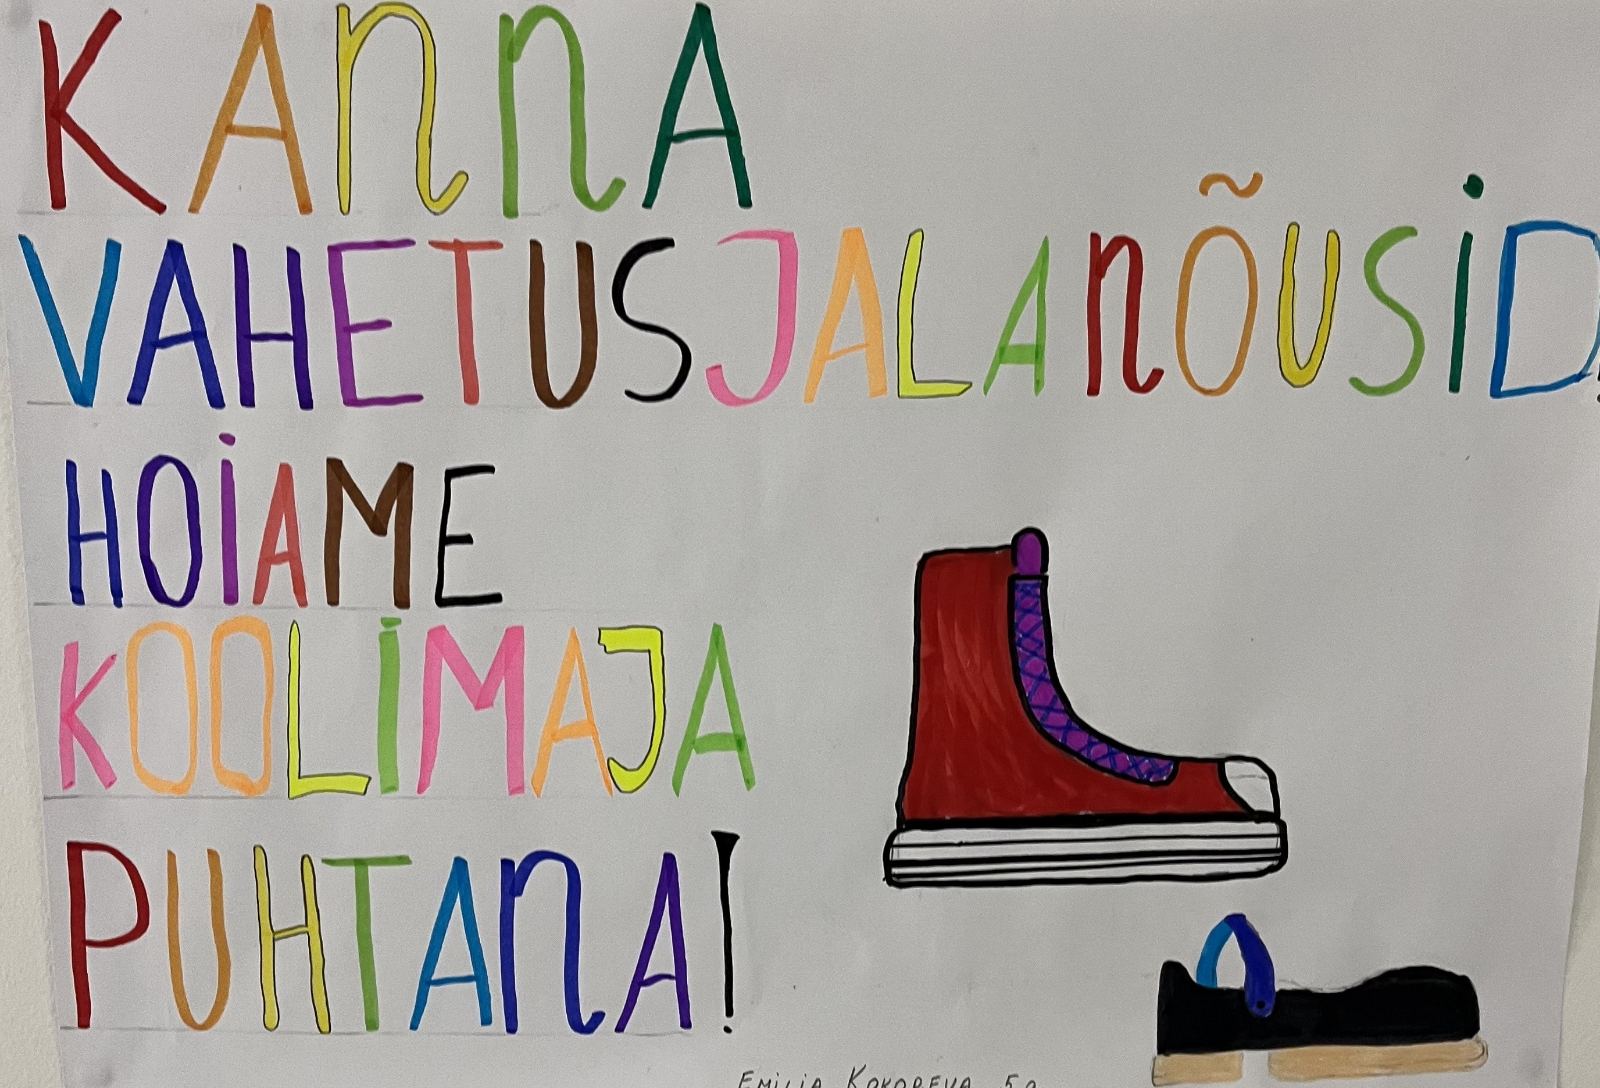 KAnnA
VAHETUSJALAnÕUSiD!
HOiAME
KOOLiMAJA
PUHTAnA!
EMiLiA KOKOREVA 5a